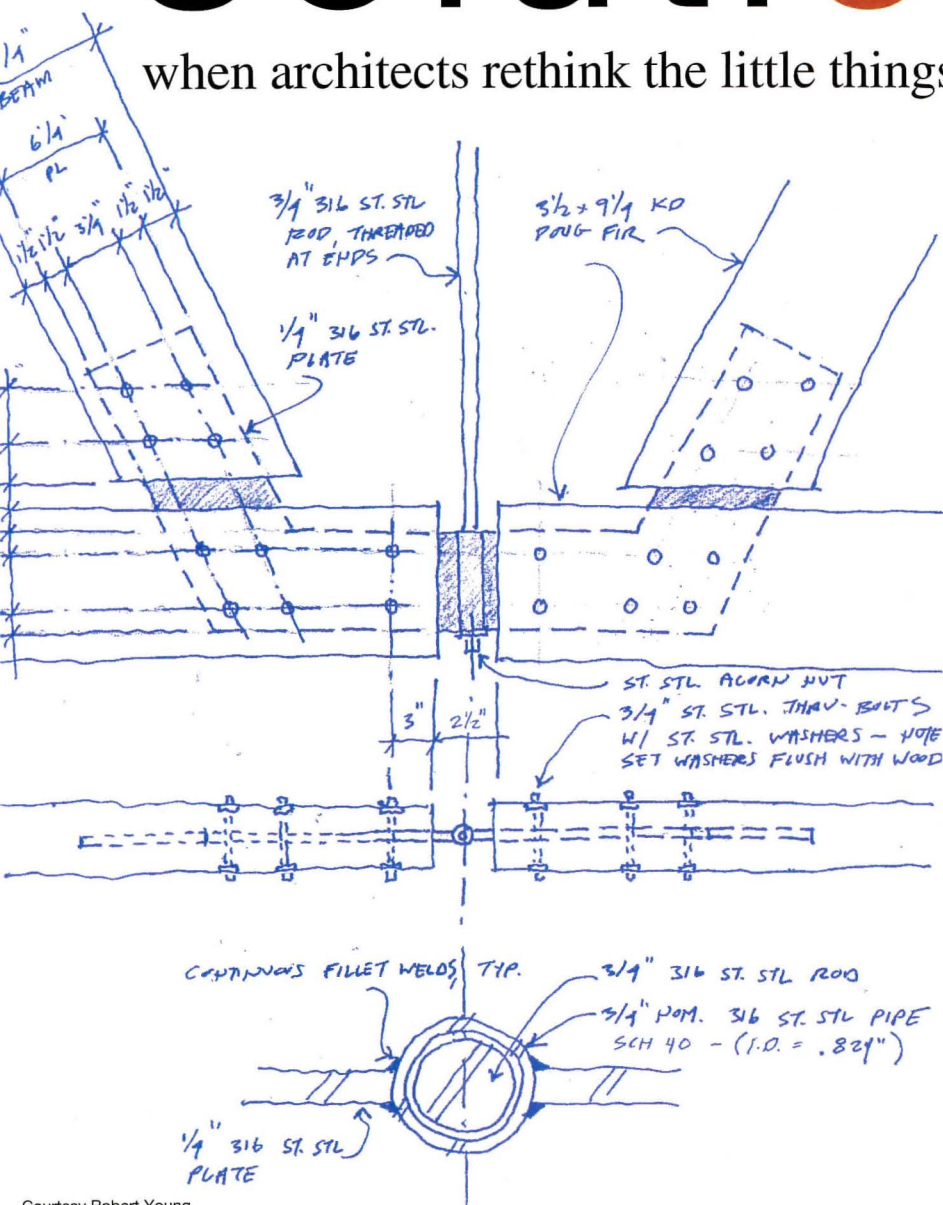 when architects rethink the little things
BEAM
6 1/4"
PL
1 1/2" 1 1/2" 3 1/4" 1 1/2" 1 1/2"
3/4" 316 ST. STL
ROD, THREADED
AT ENDS
3 1/2 x 9 1/4 KD
DOUG FIR
1/4" 316 ST. STL.
PLATE
ST. STL ACORN NUT
3/4" ST. STL. THRU-BOLTS
W/ ST. STL. WASHERS – NOTE
SET WASHERS FLUSH WITH WOOD
3" 2 1/2"
CONTINUOS FILLET WELDS, TYP.
3/4" 316 ST. STL ROD
3/4" NOM. 316 ST. STL PIPE
SCH 40 – (I.D. = .824")
1/4" 316 ST. STL
PLATE
Courtesy Robert Young